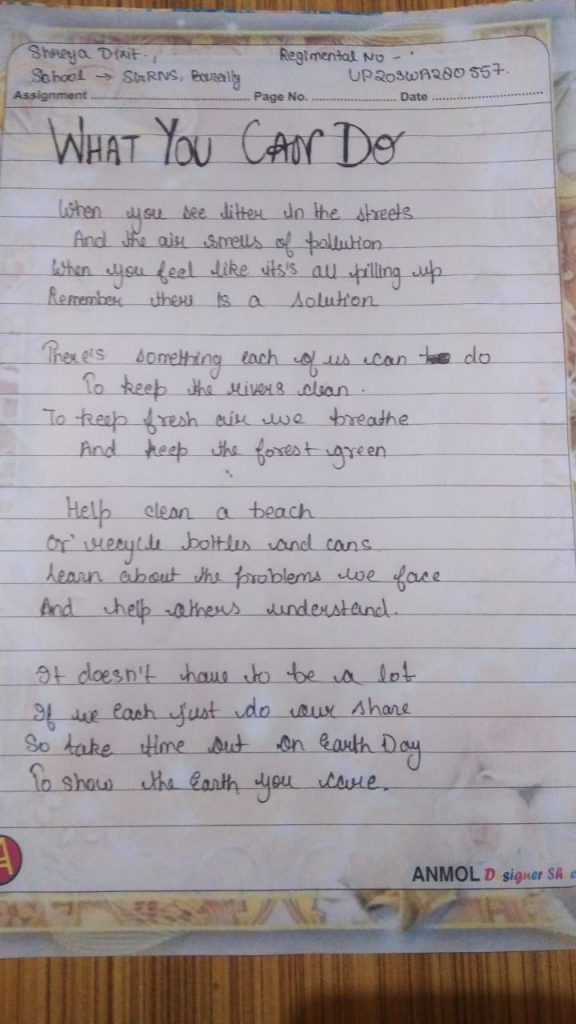 Shreya Dixit.,
Regimental No -
School → SGRNS, Bareilly
UP20SWA280557.
Assignment .......... Page No. .......... Date ..........
WHAT YOU CAN DO
When you see litter in the streets
And the air smells of pollution
When you feel like its's all pilling up
Remember there is a solution
There's something each of us can do
To keep the rivers clean.
To keep fresh air we breathe
And keep the forest green
Help clean a beach
Or recycle bottles and cans
Learn about the problems we face
And help others understand.
It doesn't have to be a lot
If we each just do our share
So take time out on Earth Day
To show the Earth you care.
ANMOL D signer S